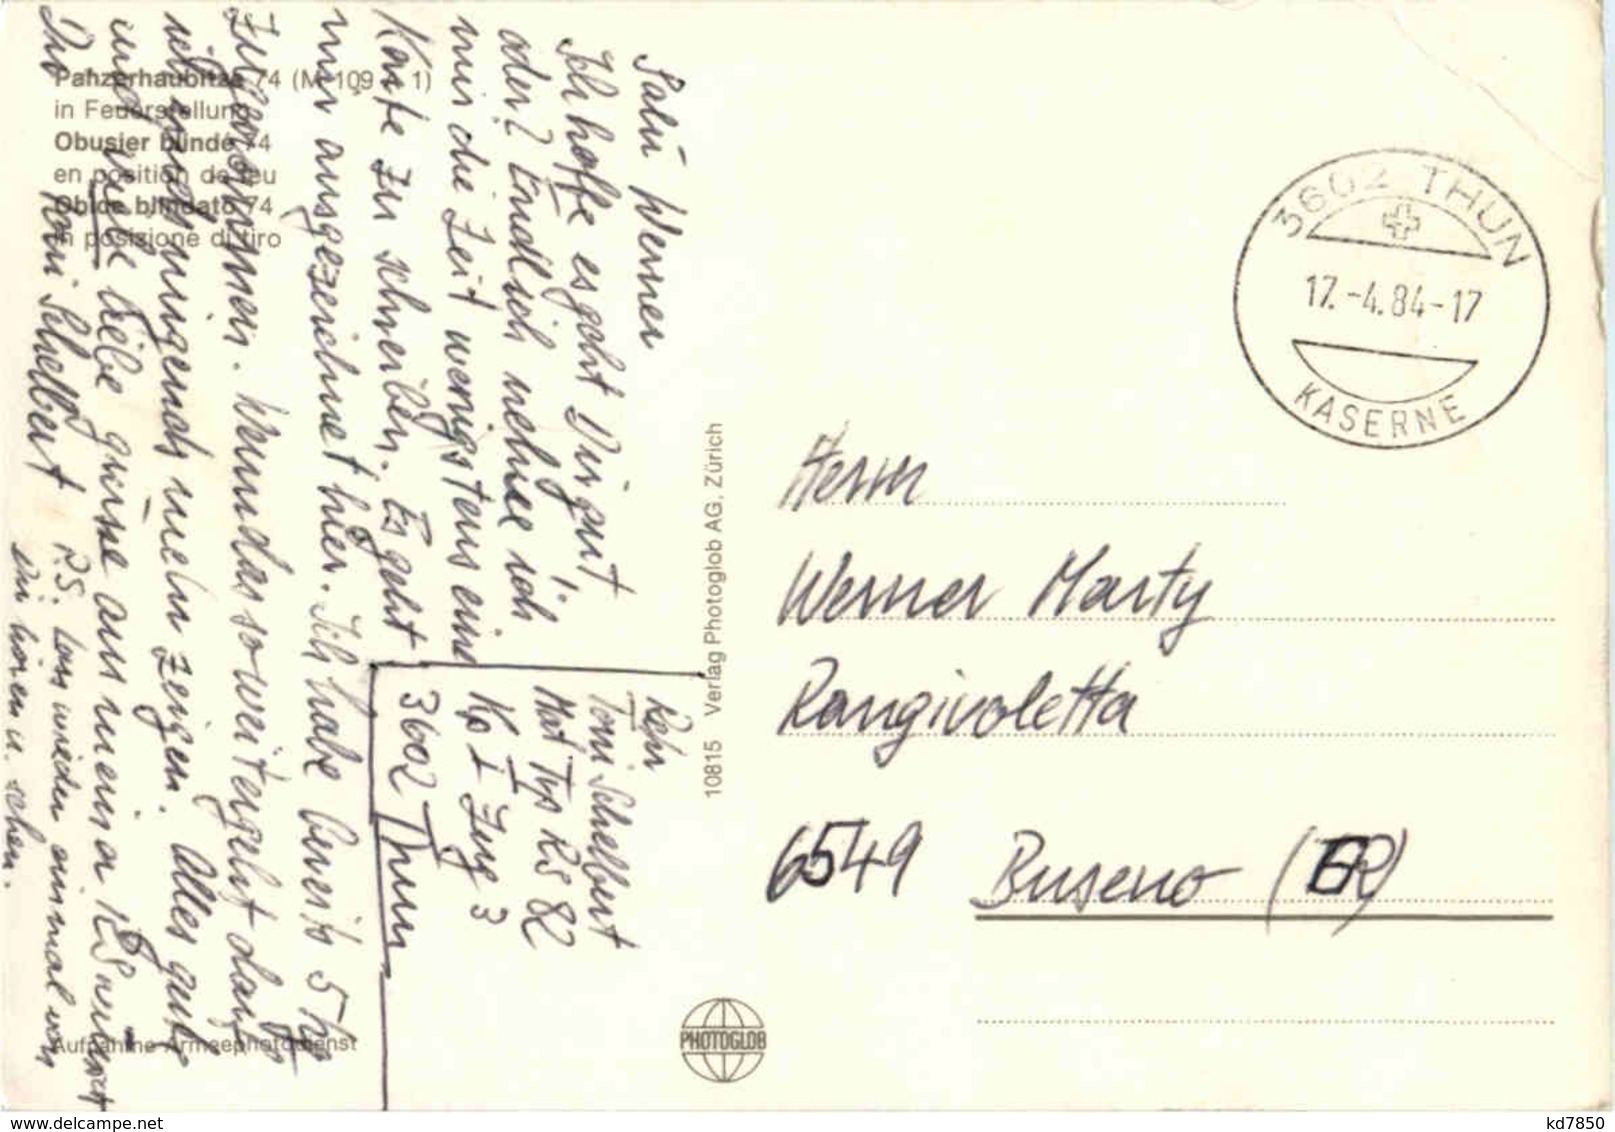 Panzerhaubitze 74 (M 109 1)
in Feuerstellung
Obusier blindé 74
en position de feu
Obice blindato 74
in posizione di tiro
Salü Werner
Ich hoffe es geht Dir gut,
oder? Endlich nehme ich
mir die Zeit wenigstens eine
Karte zu schreiben. Es geht
mir ausgezeichnet hier. Ich habe bereits 5 kg
zugenommen. Wenn das so weitergeht darf
ich mich nirgends mehr zeigen. Alles gute
und liebe grüsse aus meiner RS
Toni Schelbert
P.S. Lass wieder einmal von
Dir hören u. sehen.
Toni Schelbert
Mot Trp RS 82
Kp I Zug 3
3602 Thun
Aufnahme Armeephotodienst
10815 Verlag Photoglob AG, Zürich
PHOTOGLOB
3602 THUN
17.-4.84-17
KASERNE
Herrn
Werner Marty
Rangivoletta
6549 Buseno (GR)
delcampe.net
kd7850